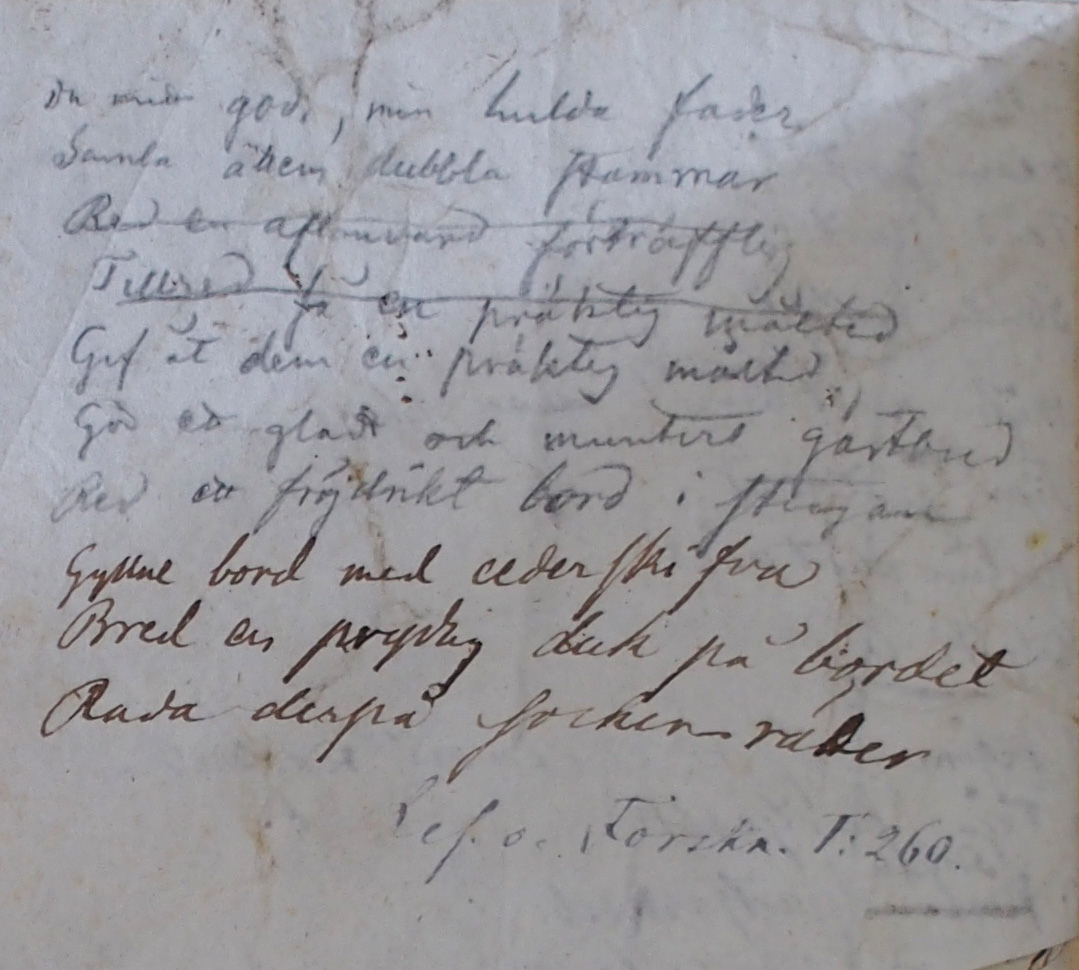 Du min gode, min hulda fader
Samla ättens dubbla stammar
Red en aftonvard förträfflig
Tillred få en präktig måltid
Gif åt dem en präktig måltid
Gör ett gladt och muntert gästbud
Red ett fröjdrikt bord i stugan
Gyllne bord med ceder skifva
Bred en prydlig duk på bordet
Rada derpå sockens rätter
Lef. o. Forskn. T: 260.